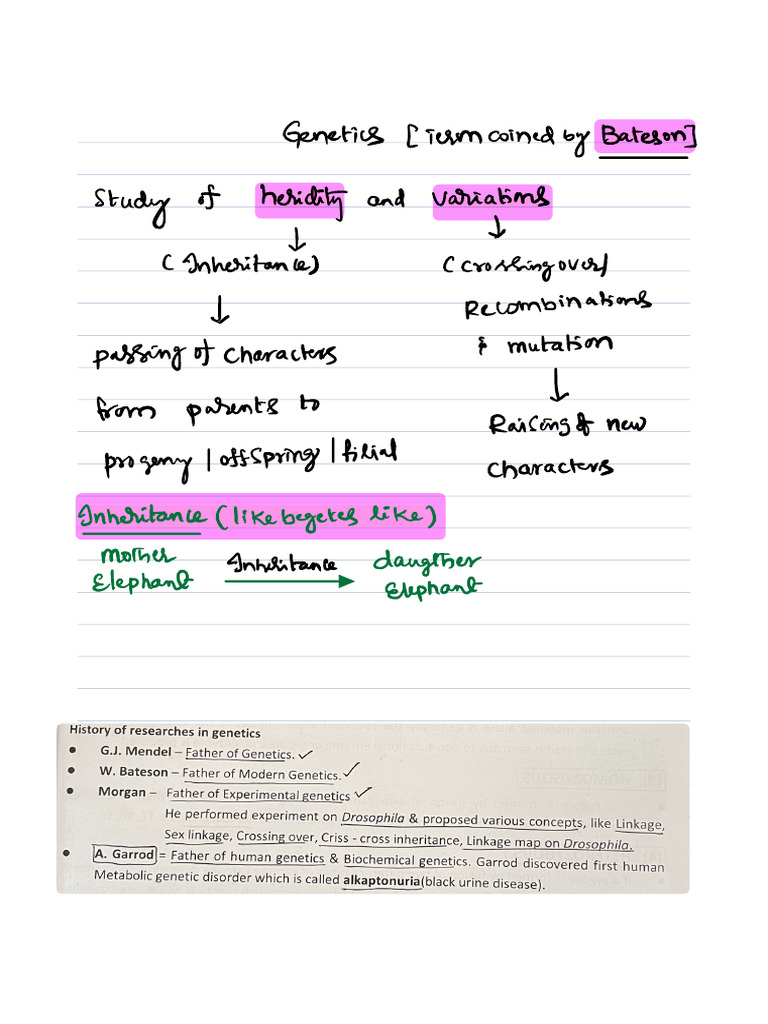 Genetics [Term coined by Bateson]
Study of heridity and variations
(Inheritance) (crossing over/
Recombinations
passing of characters & mutation
from parents to
Raising of new
progeny | offspring | filial
characters
Inheritance (like begetes like)
mother Inheritance daugther
Elephant Elephant
History of researches in genetics
• G.J. Mendel – Father of Genetics. ✓
• W. Bateson – Father of Modern Genetics. ✓
• Morgan – Father of Experimental genetics ✓
He performed experiment on Drosophila & proposed various concepts, like Linkage,
Sex linkage, Crossing over, Criss - cross inheritance, Linkage map on Drosophila.
• A. Garrod = Father of human genetics & Biochemical genetics. Garrod discovered first human
Metabolic genetic disorder which is called alkaptonuria(black urine disease).